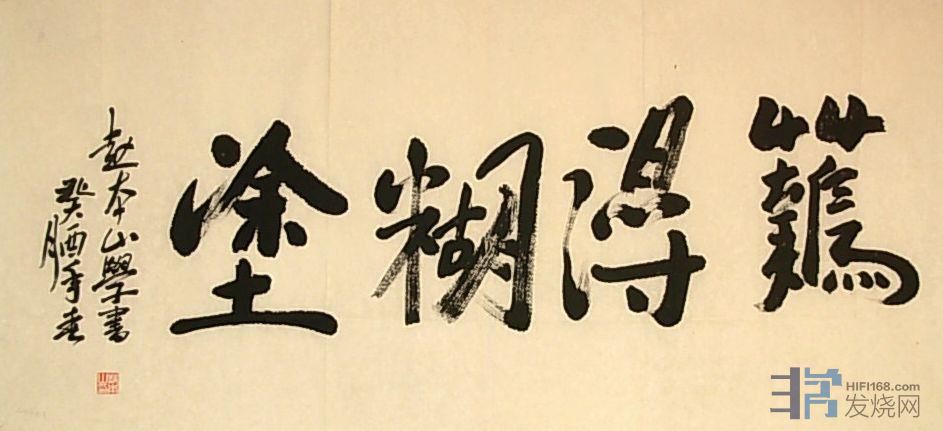 難得糊塗
赵本山學書
癸酉年春
HIFI168.com
发烧网